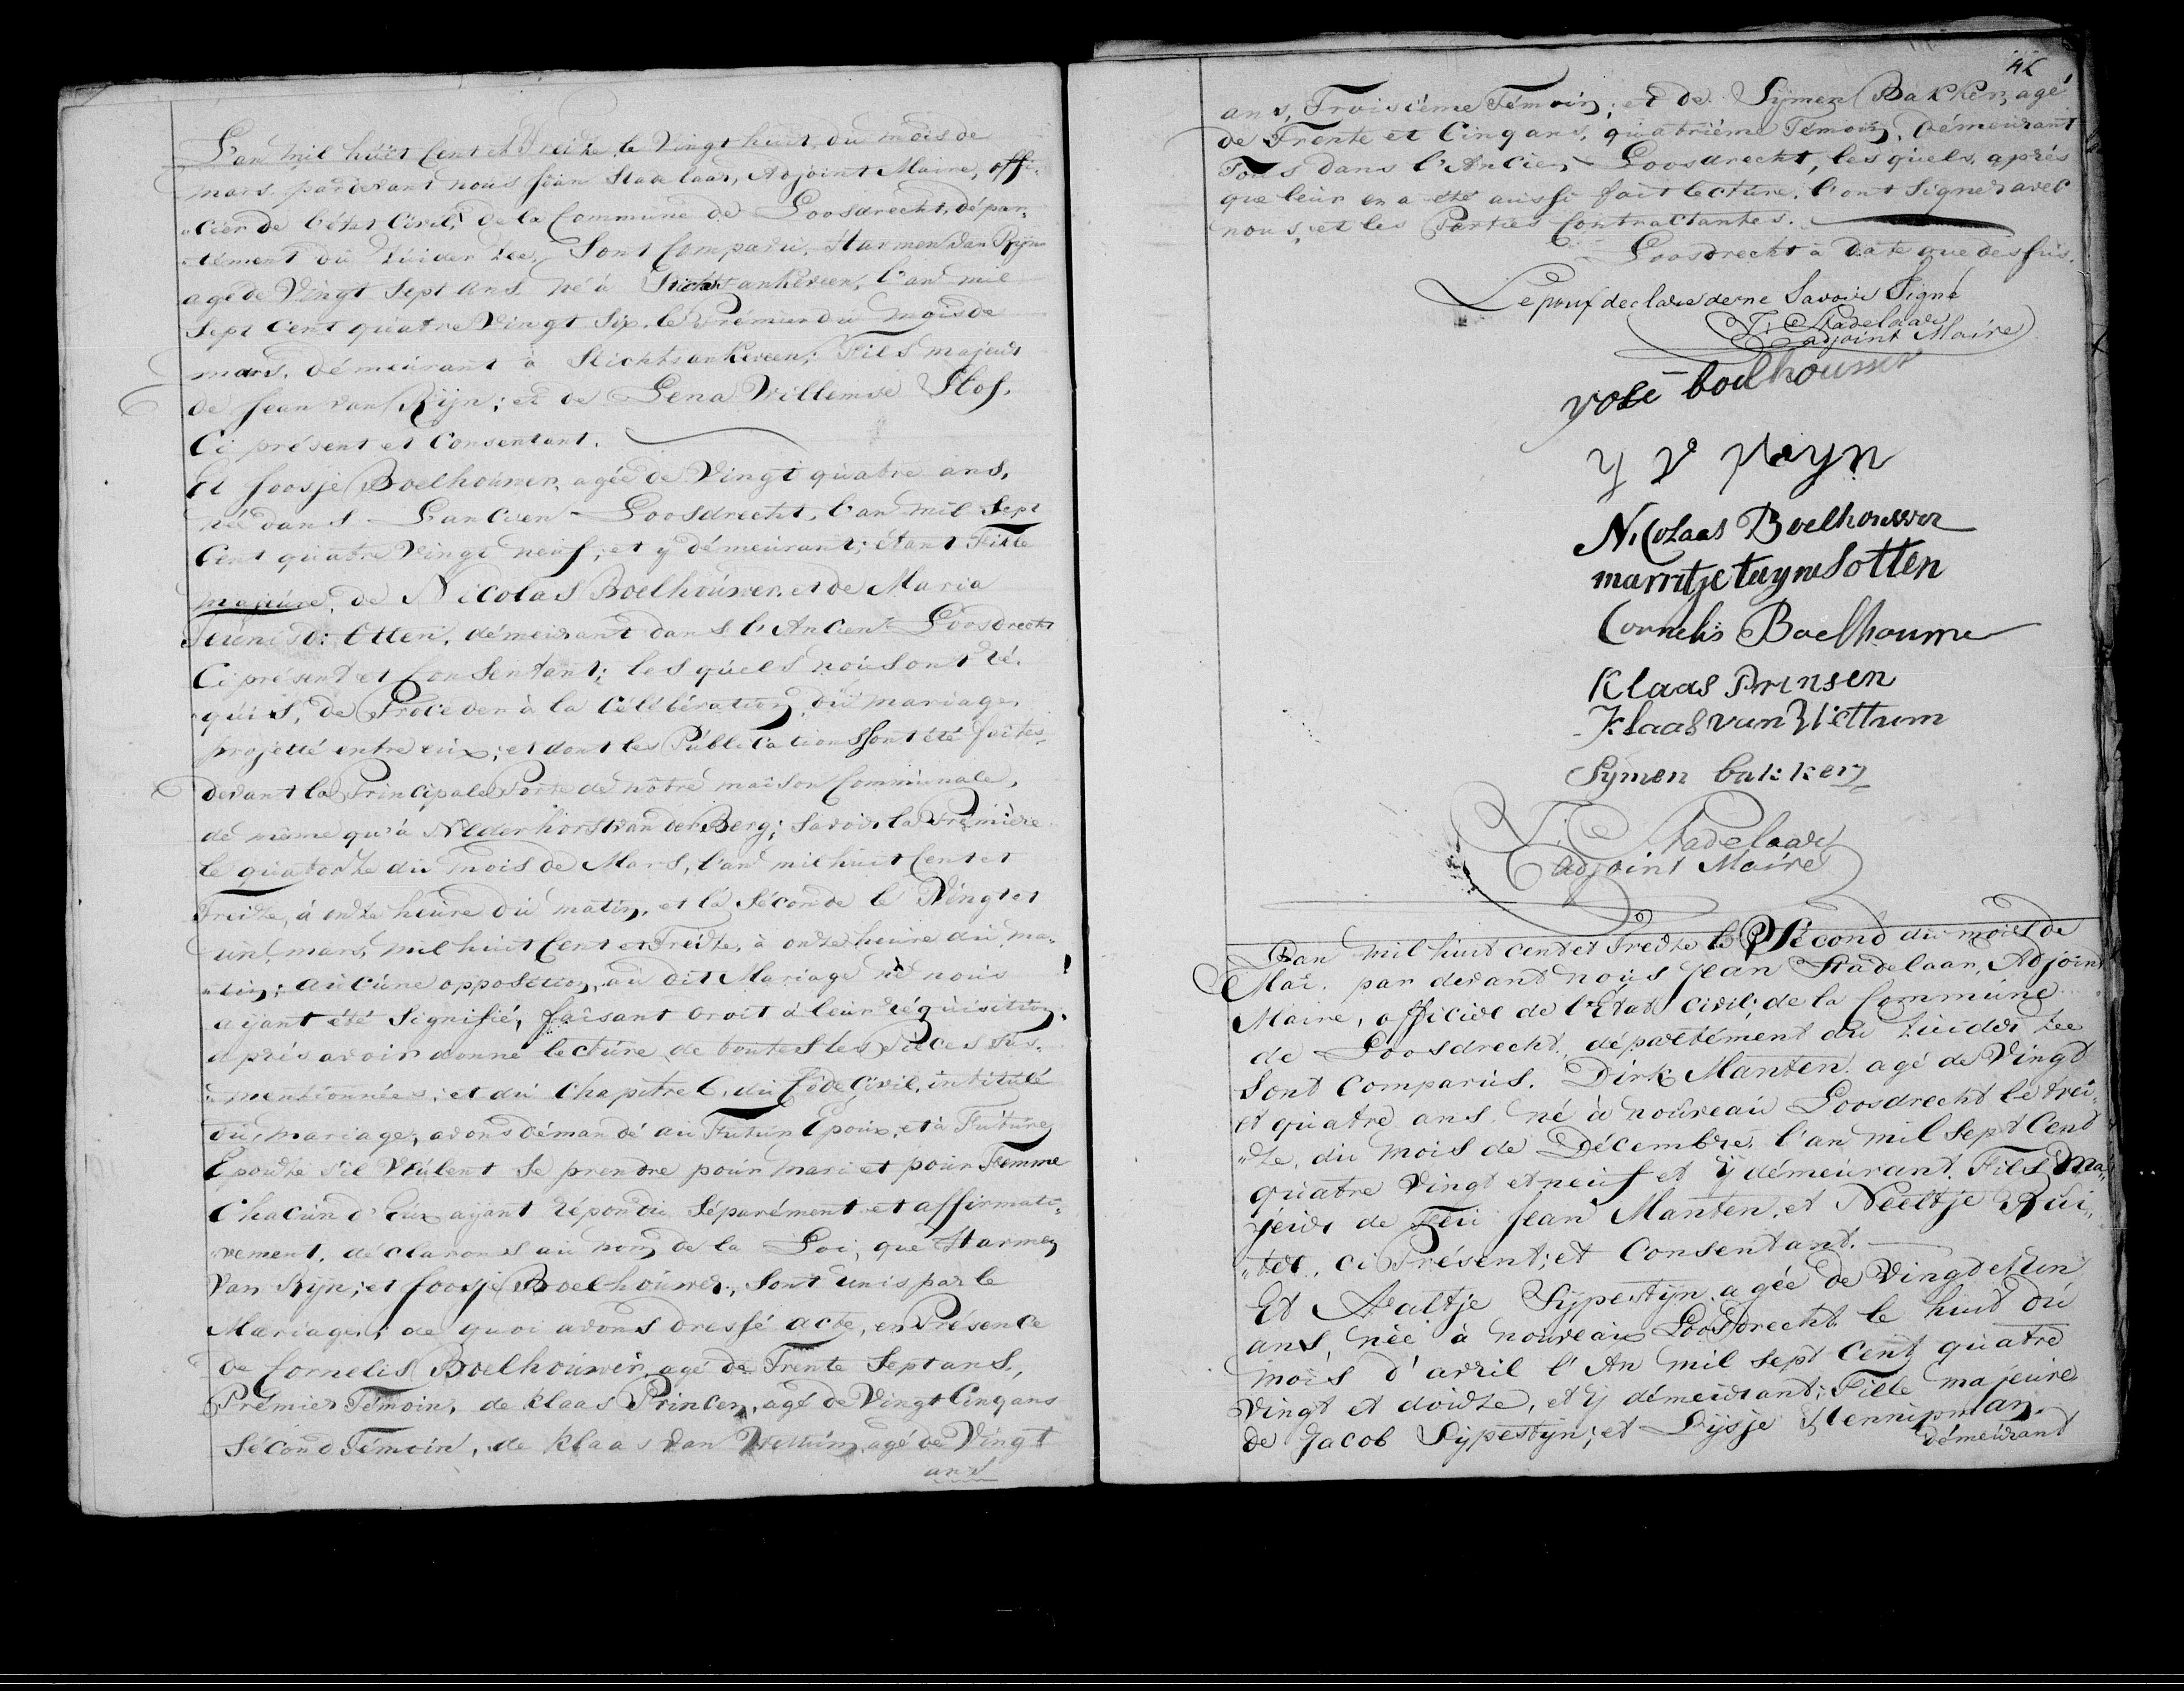 L'an mil huit Cent et Treize le Vingt huit du mois de
mars. pardevant nous Jean Stadelaar, Adjoint Maire, offi„
„cier de l'état Civil, de la Commune de Loosdrecht, dépar„
„tément du Zuider Zee, Sont Comparu, Harmen van Rijn
agé de Vingt Sept ans né à Stichtsankeveen, l'an mil
Sept Cent quatre Vingt Six. le Prémier du mois de
mars, démeurant à Stichtsankeveen; Fils majeur
de Jean van Rijn; et de Lena Willemse Stof.
Ci présent et Consentant.
Et Joosje Boelhouwer, agée de Vingt quatre ans,
née dans L'ancien Loosdrecht, l'an mil Sept
Cent quatre Vingt neuf, et y démeurant; étant Fille
majeure, de Nicolas Boelhouwer, et de Maria
démeurant dans l'Ancien Loosdrecht
Ci présent et Consentant; lesquels nous ont ré„
„quis, de Procéder à la Célébration du mariage,
projetté entre eux; et dont les Publications Sont été faites
devant la Principale Porte de nôtre maison Communale,
de même qu'à Nederhorst van der Berg; Savoir la Prémière
le quatorze du mois de Mars, l'an mil huit Cent et
Treize, à onze heure du matin, et la Séconde le Vingt et
un, mars, mil huit Cent et Treize, à onze heure du ma„
„tin; aucune opposition, au dit Mariage nè nous
ayant été Signifié, faisant droit à leur réquisition,
après avoir donné lecture de toutes les Pièces Sus„
„mentionnées; et du Chapitre 6. du Côde Civil, intitulé
du, mariage, avons démandé au Futur Epoux, et à Future
Epouze s'il Veulent Se prendre pour mari et pour Femme
Chacun d'Eux ayant répondu Séparément et affirmati„
„vement. déclarons au nom de la Loi, que Harmen
van Rijn; et Joosje Boelhouwer, Sont unis par le
Mariage; de quoi avons dressé acte, en Présence
de Cornelis Boelhouwer, agé de Trente Sept ans,
Prémier Témoin, de Klaas Princen, agé de Vingt Cinq ans
Sécond Témoin, de Klaas van Wettum, agé de Vingt
ans
ans, Troisième Témoin; et de Sijmen Bakker, agé
de Trente et Cinq ans, quatrième Témoin, Démeurant
Tous dans l'Ancien Loosdrecht, les quels, après
que leur en a été aussi fait lecture, l'ont Signer avec
nous, et les Parties Contractantes.
Loosdrecht à Date que dessus.
Lepoux declare de ne Savoir Signé
J: Stadelaar
adjoint Maire
boelhouwer
y v Reyn
Nicolaas Boelhouwer
marritje
Cornelis Boelhouwe
Klaas Prinsen
Klaas van Wettum
Symen bakker
J: Stadelaar
adjoint Maire
L'an mil huit cent et Treize le Sécond du mois de
Mai. par devant nous Jean Stadelaar, Adjoint
Maire, officier de l'Etat civil; de la Commune
de Loosdrecht, départément du Zuider Zee
Sont Comparus. Dirk Manten. agé de Vingt
et quatre ans. né à nouveau Loosdrecht le trei„
„ze, du mois de Décembre, l'an mil sept Cent
quatre Vingt et neuf et y démeurant. Fils Ma„
jeur de Feu Jean Manten. et Neeltje Rui„
„ter. ci Présent; et Consentant.
Et Aaltje Sijpestijn agée de Vingt et un
ans, née à nouveau Loosdrecht le huit du
mois d'avril l'An mil sept Cent quatre
Vingt et douze, et y démeurant; Fille majeure
de Jacob Sijpestijn; et Lijsje Hennipman.
démeurant